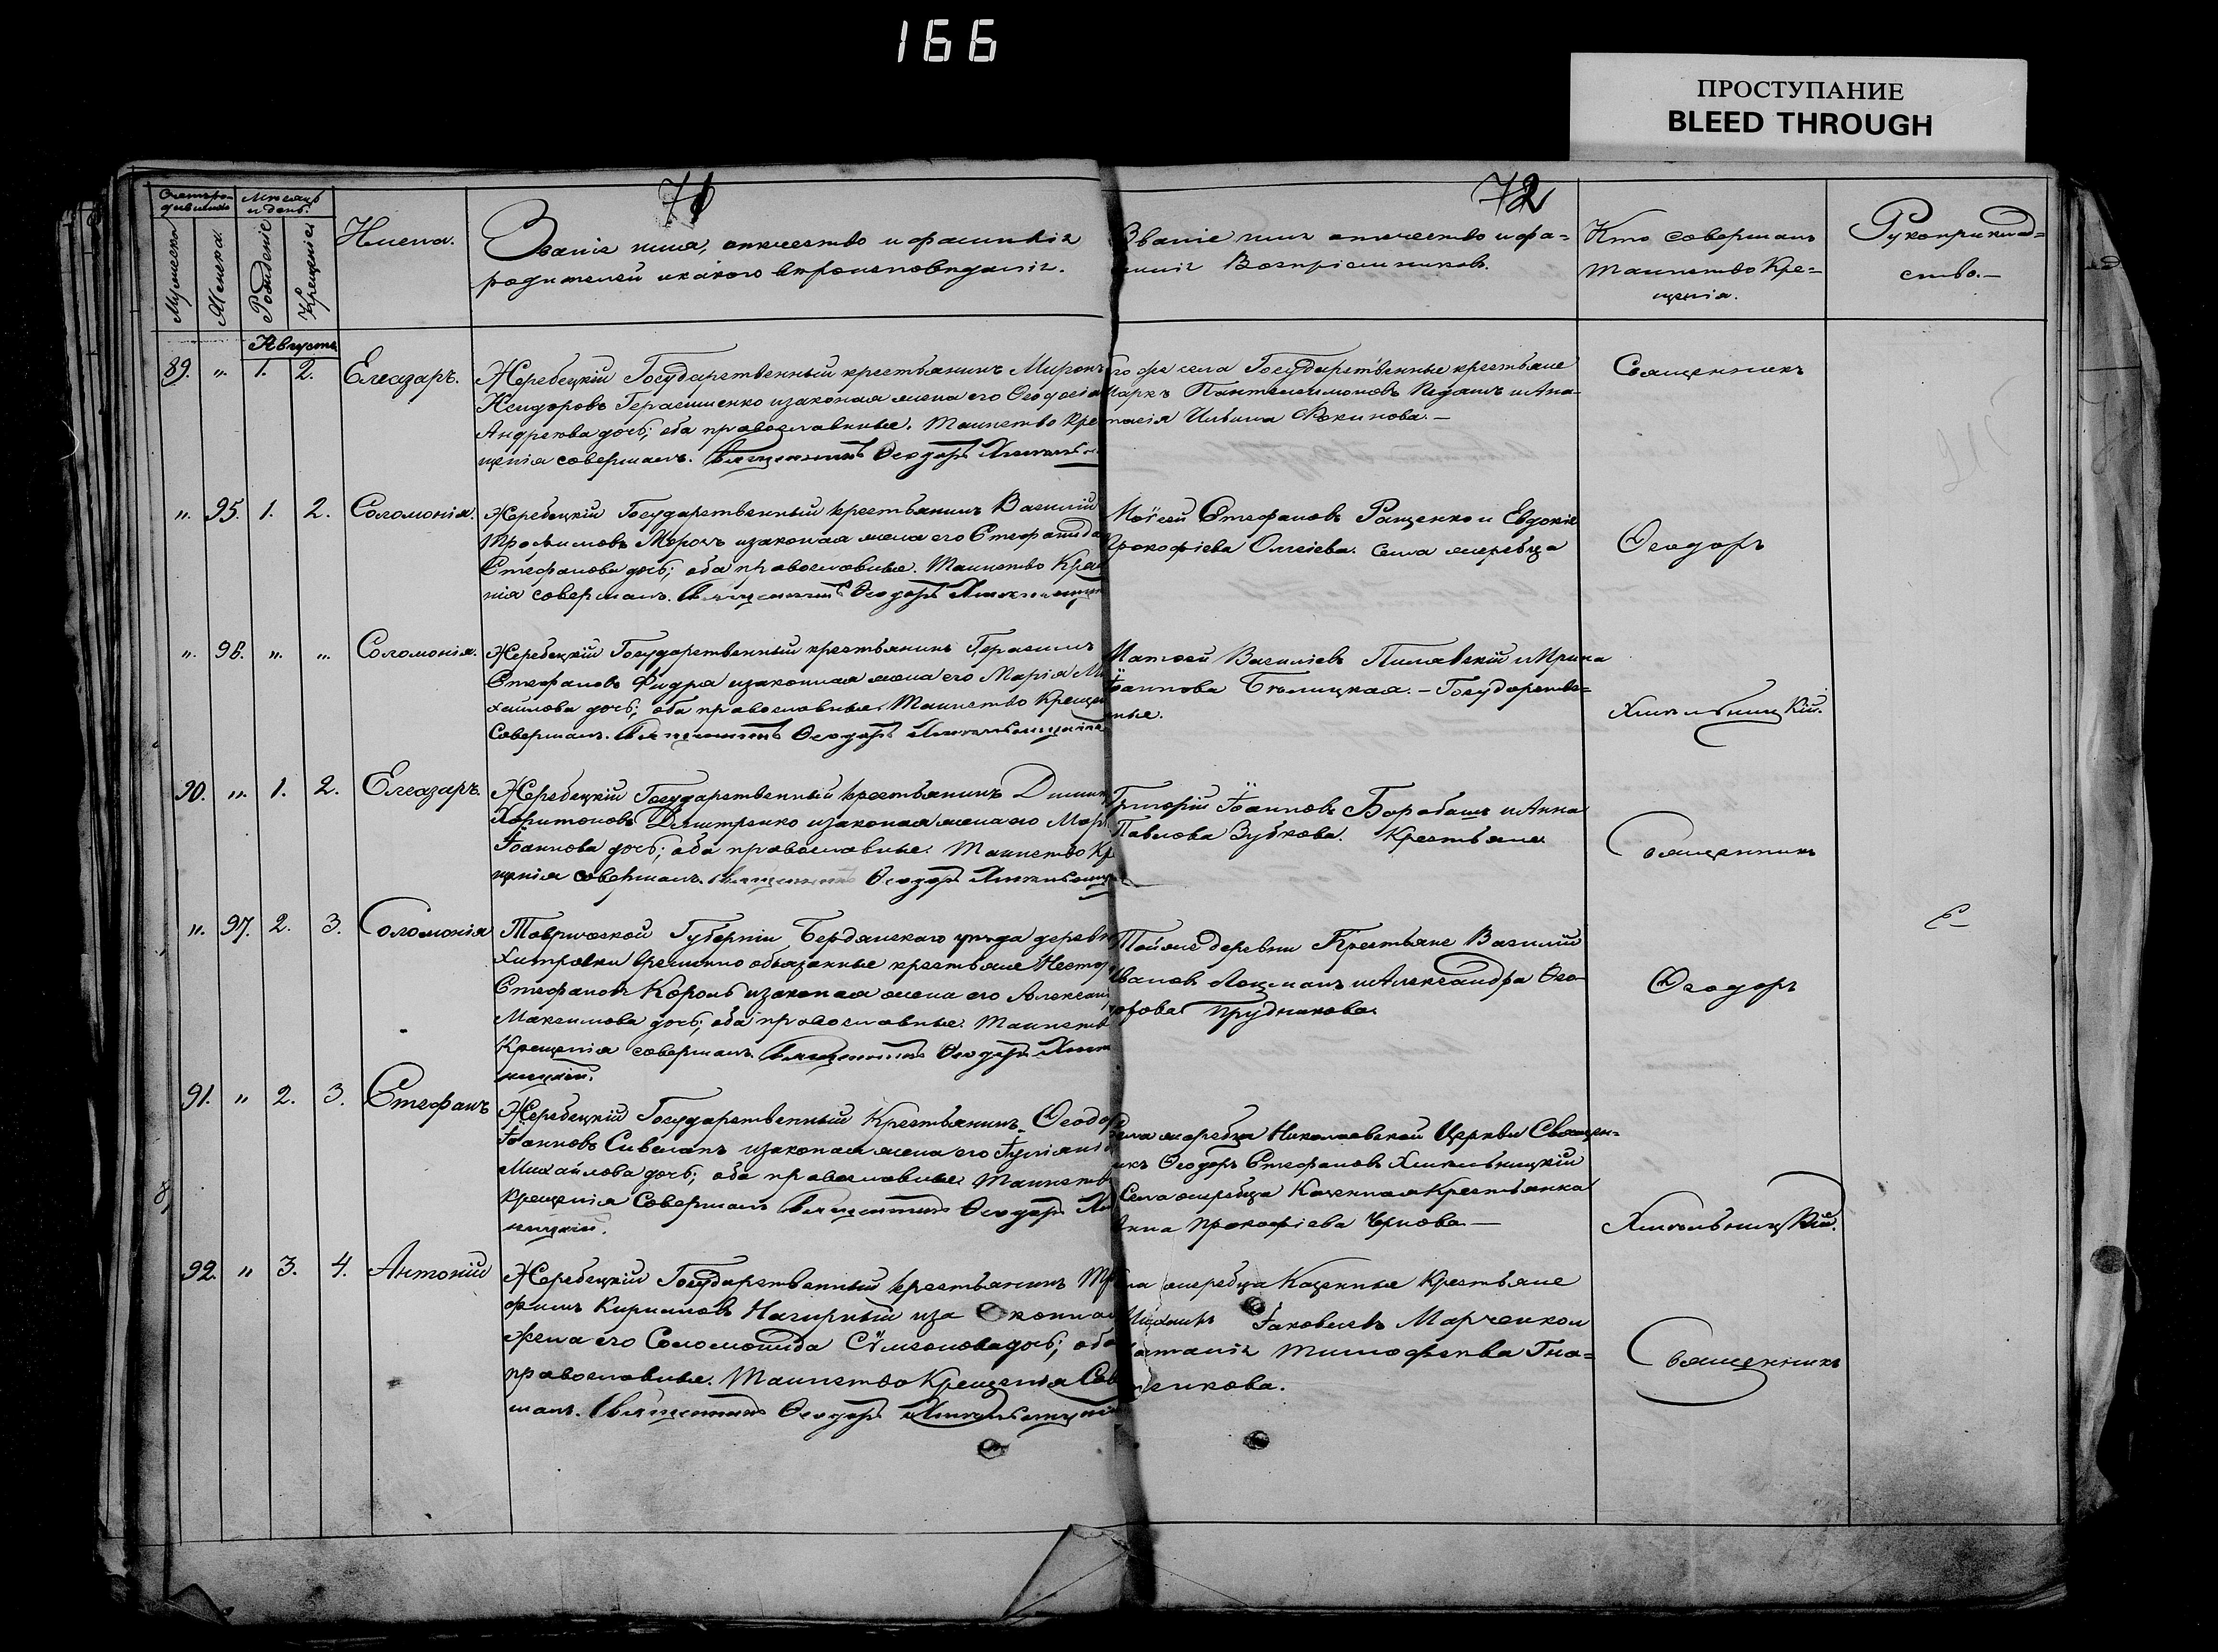 166
ПРОСТУПАНИЕ
BLEED THROUGH
71
72
Мужеска
Женска.
Месяцъ
и день.
Рожденіе
Крещеніе
Имена.
Званіе имя, отчество и фамилія
родителей и какого вероисповеданія.
Званіе имя отчество и фа=
миліи Воспріемниковъ.
Кто совершалъ
таинство Кре=
щенія.
Рукоприклад=
ство.—
Августъ
89. „ 1. 2. Елеазаръ.
Жеребецкій Государственный крестьянинъ Миронъ
Исидоровъ Герасименко и законая жена его Ѳеодосія
Андреева дочь; оба православные. Таинство Кре
щенія совершалъ. Священникъ Ѳеодоръ
го же села Государственные крестьяне
Маркъ Пантелеимоновъ и Ана=
стасія Фокинова.—
Священникъ
„ 95. 1. 2. Соломонія.
Жеребецкій Государственный крестьянинъ Василій
Трофимовъ Морозъ и законая жена его Стефанида
Стефанова дочь; оба православные. Таинство Кре
нія совершалъ. Священникъ Ѳеодоръ Хмельницк
Моѵсей Стефановъ Ращенко и Евдокія
Прокофіева Села жеребца
Ѳеодоръ
„ 96. „ „ Соломонія.
Жеребецкій Государственный крестьянинъ Герасимъ
Стефановъ Фидря и законная жена его Марія Ми
хайлова дочь; оба православные. Таинство Крещен
Совершалъ. Священникъ Ѳеодоръ Хмельницкій
Матѳей Василіевъ Пилавскій и Ирина
Іоаннова Белицкая.— Государстве=
нные.
Хмельницкій.
90. „ 1. 2. Елеазаръ.
Жеребецкій Государственный крестьянинъ Димит
Харитоновъ Дмитренко и законая жена его Мар
Іоаннова дочь; оба православные. Таинство Кр
щенія совершалъ. Священникъ Ѳеодоръ Хмельниц
Григорій Іоанновъ Барабашъ и Анна
Павлова Зубкова. Крестьяне
Священникъ
„ 97. 2. 3. Соломонія
Таврической Губерніи Бердянскаго уезда деревн
Хитровки временно обязанные крестьяне Нестор
Стефановъ Король и законая жена его Алексан
Максимова дочь; оба православные. Таинств
Крещенія совершалъ. Священникъ Ѳеодоръ Хмел
ницкій.
Той же деревни Крестьяне Василій
Ивановъ Лоцманъ и Александра Ѳео
дорова Прудникова
Ѳеодоръ
91. „ 2. 3. Стефанъ
Жеребецкій Государственный Крестьянинъ Ѳеодор
Іоанновъ Сивеланъ и законая жена его Іуліані
Михайлова дочь; оба православные. Таинств
Крещенія Совершалъ Священникъ Ѳеодоръ Хм
ницкій.
Села жеребца Николаевской Церкви Священ=
никъ Ѳеодоръ Стефановъ Хмельницкій
Села жеребца Казенная Крестьянка
Анна Прокофіева Чернова—
Хмельницкій.
92. „ 3. 4. Антоній
Жеребецкій Государственный крестьянинъ Тр
фимъ Кириловъ Нагирный и за конная
жена его Соломонида Сѵмеонова дочь; оба
православные. Таинство Крещенія Сов
шалъ. Священникъ Ѳеодоръ Хмельницкій
ла жеребца Казенные Крестьяне
Михаилъ Іаковлевъ Марченко и
Наталія Тимофеева Гна=
тенкова.
Священникъ